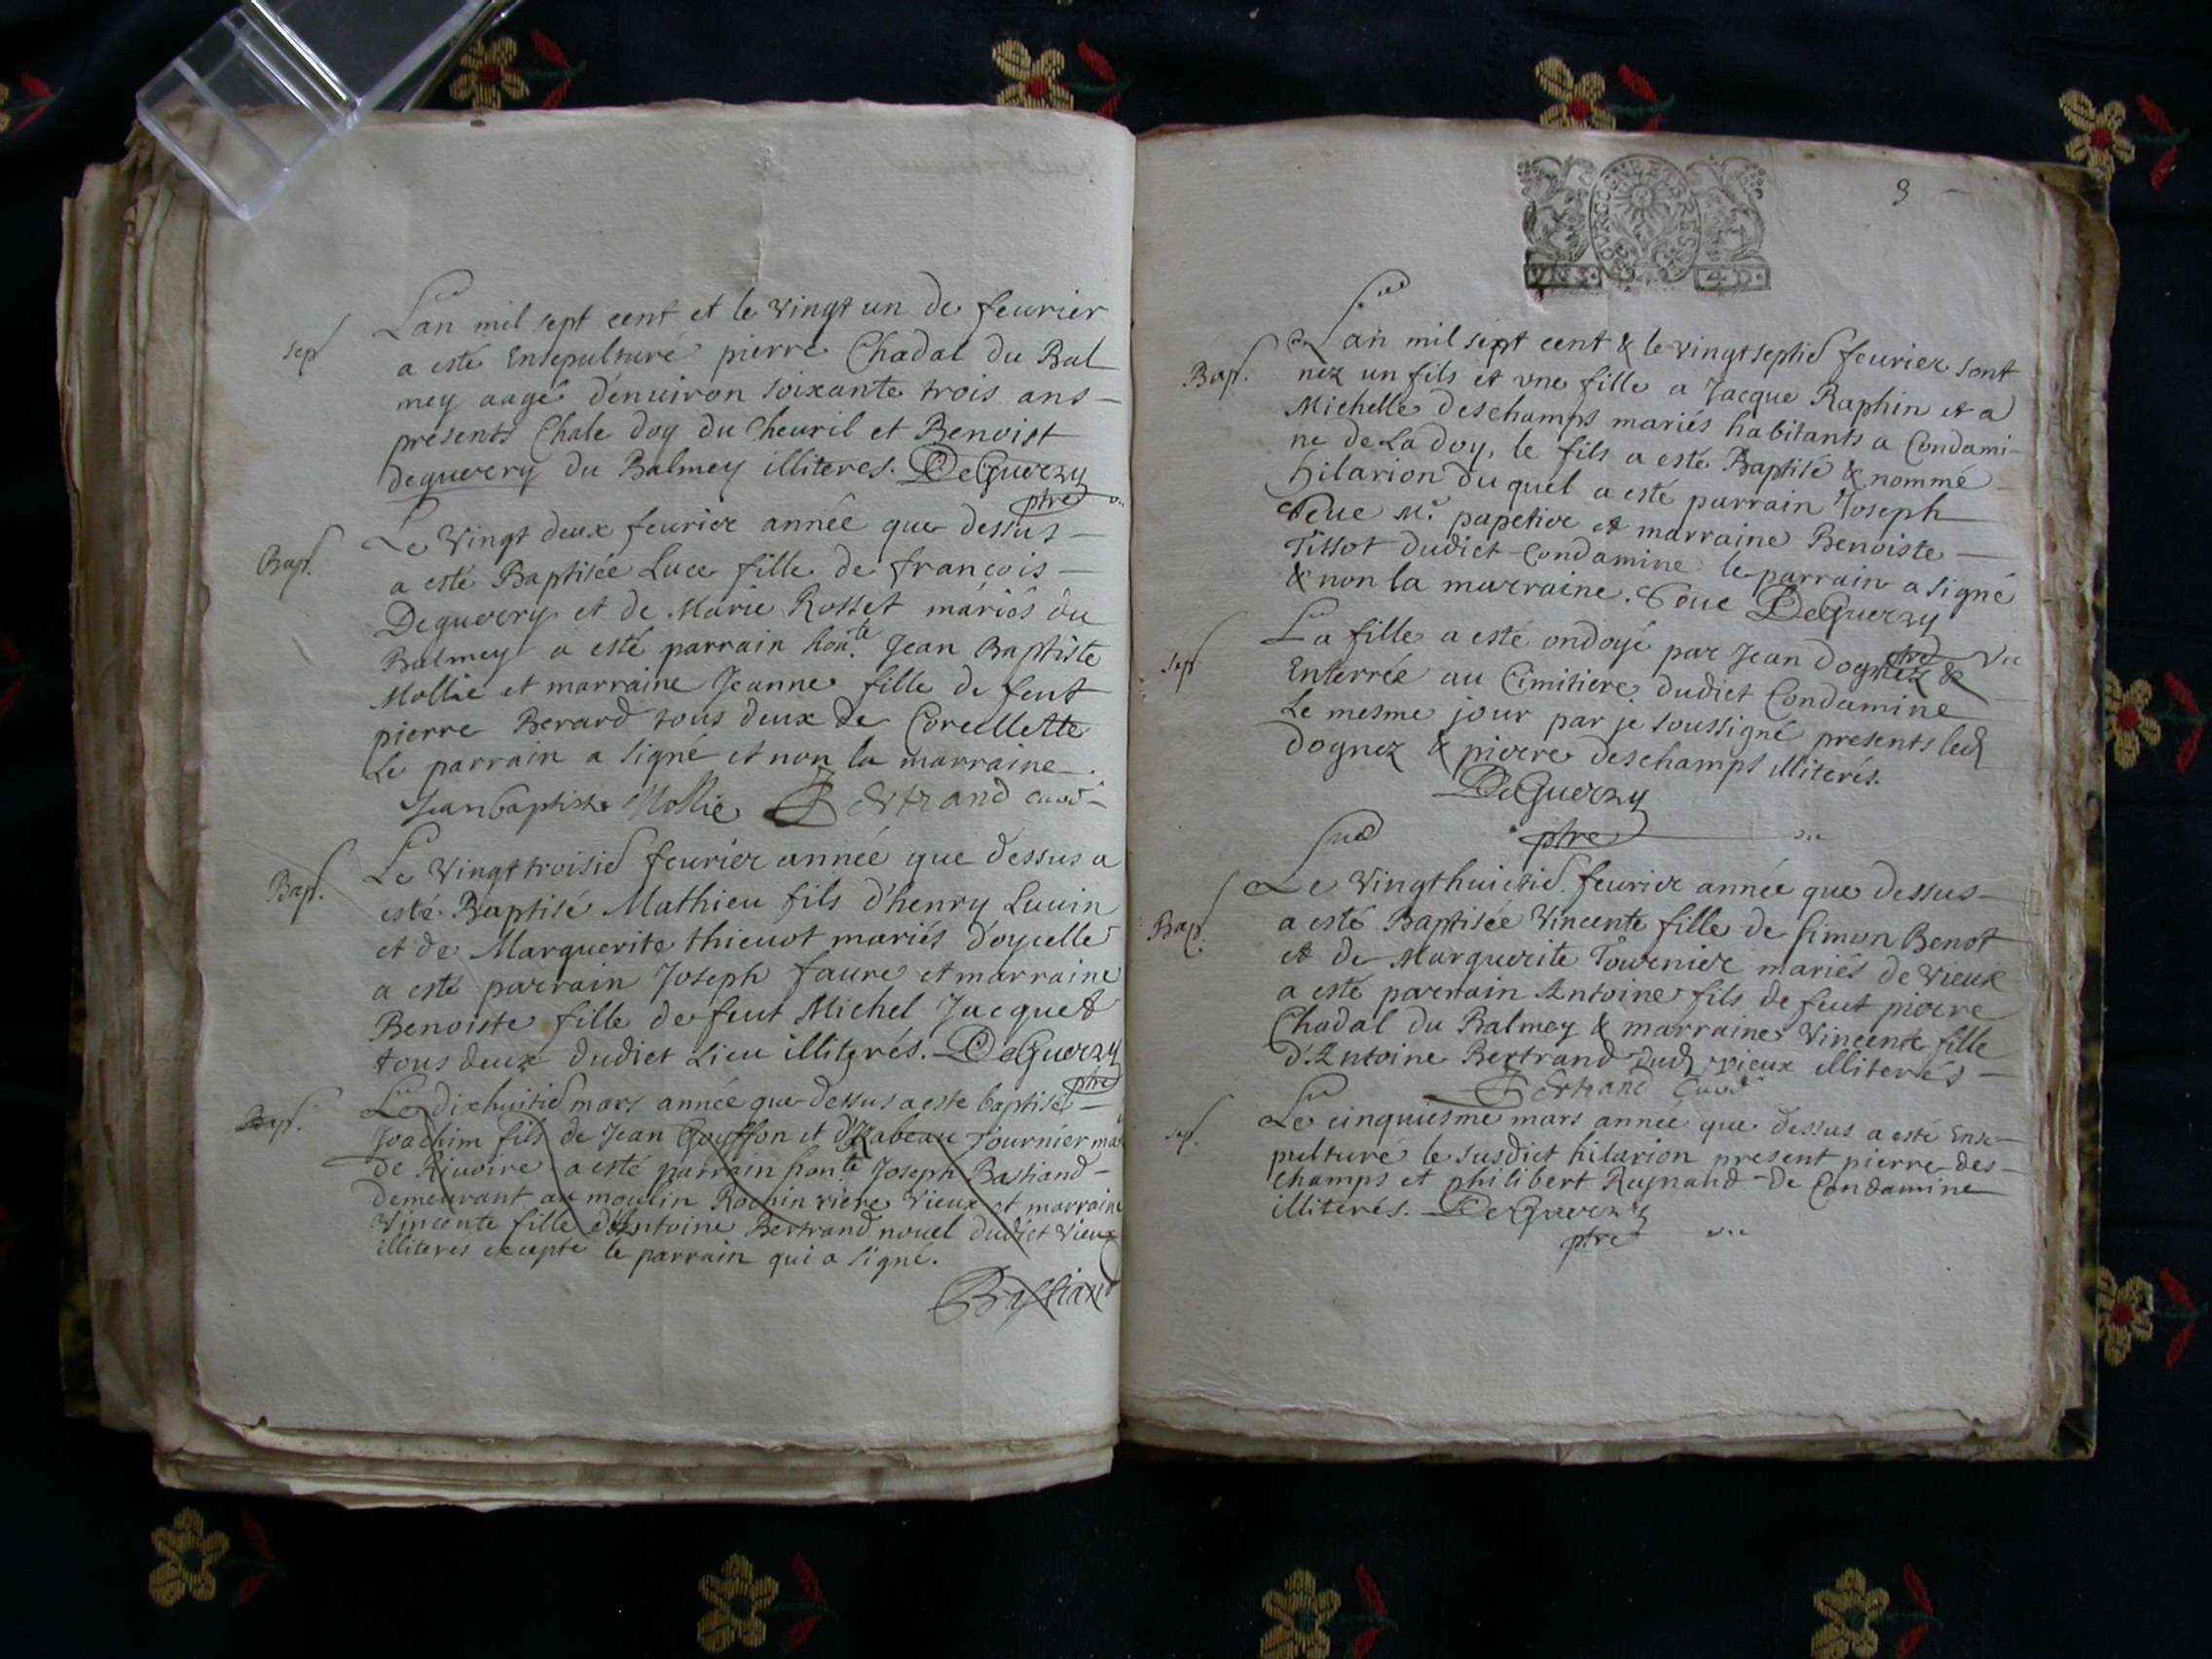 sep
Lan mil sept cent et le vingt un de feurier
a esté Ensepulturé pierre Chadal du Bal
mey aagé denuiron soixante trois ans
presents Chale doy du Cheuril et Benoist
deguerry du Balmey illiteres. DeGuerry
ptre
Bap.
Le vingt deux feurier année que dessus
a esté Baptisée Luce fille de françois
Deguerry et de Marie Rosset mariés du
Balmey a esté parrain hon.te Jean Baptiste
Mollie et marraine Jeanne fille de feut
pierre Berard tous deux de Corcellette
Le parrain a signé et non la marraine.
Jean baptiste Mollie Bertrand curé
Bap.
Le vingt troisie feurier année que dessus a
esté Baptisé Mathieu fils d'henry Luuin
et de Marguerite thieuot mariés doyselle
a esté parrain Joseph faure et marraine
Benoiste fille de feut Michel Jacquet
tous deux dudict Lieu illiterés. DeGuerry
ptre
Bap.
Le dixhuitie mars année que dessus a este baptisé
Joachim fils de Jean Goyffon et d'Isabeau Tournier ma
de Riuoire a esté parrain hon.te Joseph Bastiand
demeurant au moulin Rochin riere Vieux et marraine
Vincente fille d'Antoine Bertrand nouel dudict Vieux
illiterés excepté le parrain qui a signé.
Bastiand
3
BOURG EN BRESSE
Bap.
Lan mil sept cent & le vingt septie feurier sont
nez un fils et vne fille a Jacque Raphin et a
Michelle deschamps mariés habitants a Condami-
ne de La doy, le fils a esté Baptisé & nommé
hilarion duquel a esté parrain Joseph
M.e papetier et marraine Benoiste
Tissot dudict Condamine le parrain a signé
& non la marraine. DeGuerry
ptre
sep
La fille a esté ondoyé par Jean dognez &
Enterrée au Cimitiere dudict Condamine
Le mesme jour par je soussigné presents led
dognez & pierre deschamps illiterés.
DeGuerry
ptre
Bap.
Le vingthuictie. feurier année que dessus
a esté Baptisée Vincente fille de Simon Benot
et de Marguerite Tournier mariés de vieux
a esté parrain Antoine fils de feut pierre
Chadal du Balmey & marraine Vincente fille
d'Antoine Bertrand dud vieux illiterés
Bertrand Curé
sep.
Le cinquiesme mars année que dessus a esté Ense-
pulturé le susdict hilarion present pierre des-
champs et philibert Reynaud de Condamine
illiterés. DeGuerry
ptre